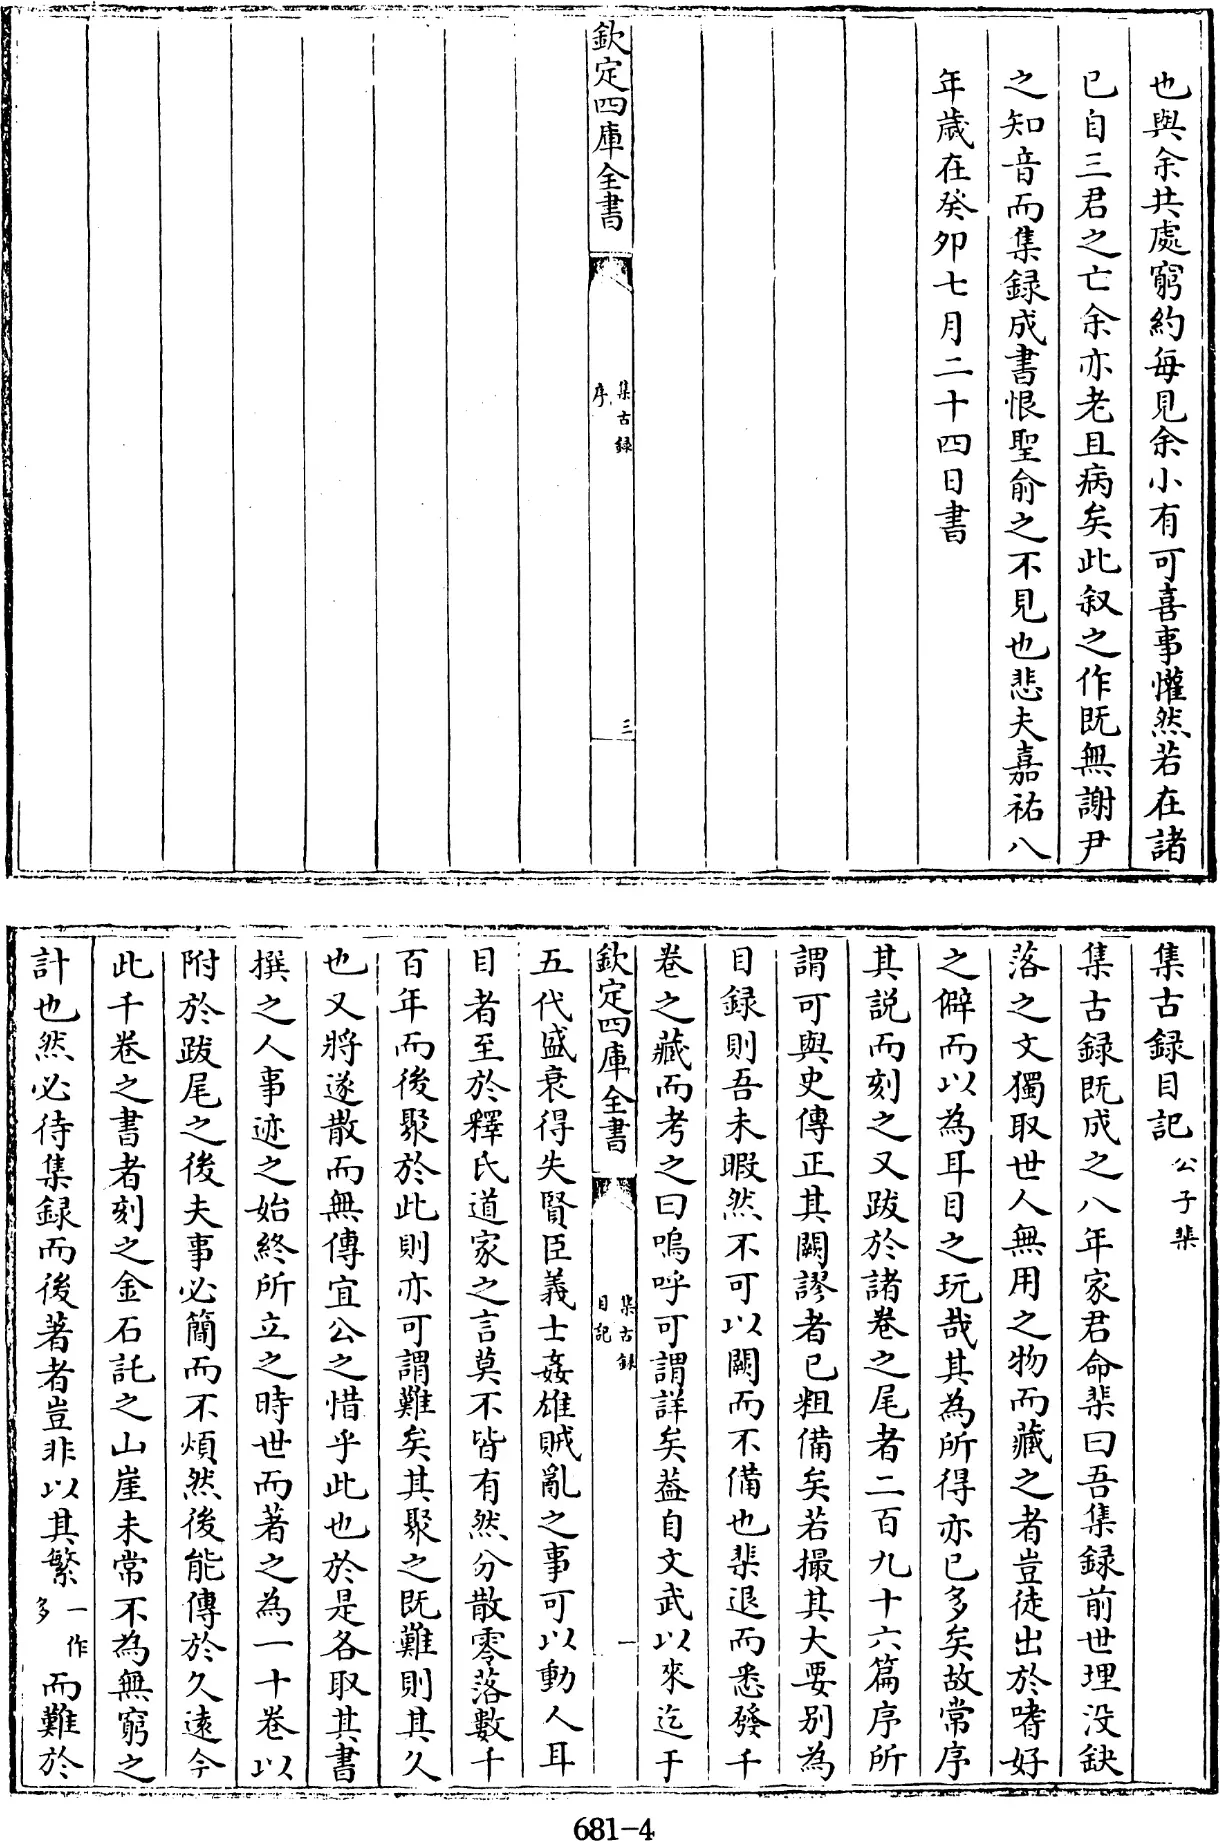 也與余共處窮約每見余小有可喜事懽然若在諸
已自三君之亡余亦老且病矣此叙之作既無謝尹
之知音而集録成書恨聖俞之不見也悲夫嘉祐八
年歲在癸卯七月二十四日書
欽定四庫全書
集古録
序
三
集古録目記公子棐
集古録既成之八年家君命棐曰吾集録前世埋没缺
落之文獨取世人無用之物而藏之者豈徒出於嗜好
之僻而以為耳目之玩哉其為所得亦已多矣故常序
其説而刻之又跋於諸卷之尾者二百九十六篇序所
謂可與史傳正其闕謬者已粗備矣若撮其大要别為
目録則吾未暇然不可以闕而不備也棐退而悉發千
卷之藏而考之曰嗚呼可謂詳矣葢自文武以來迄于
欽定四庫全書
集古録
目記
一
五代盛衰得失賢臣義士姦雄賊亂之事可以動人耳
目者至於釋氏道家之言莫不皆有然分散零落數千
百年而後聚於此則亦可謂難矣其聚之既難則其久
也又將遂散而無傳宜公之惜乎此也於是各取其書
撰之人事迹之始終所立之時世而著之為一十卷以
附於跋尾之後夫事必簡而不煩然後能傳於久遠今
此千卷之書者刻之金石託之山崖未常不為無窮之
計也然必待集録而後著者豈非以其繁一作多而難於
681-4